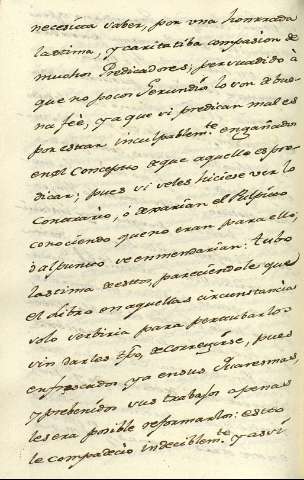 necesita saber, por una honrrada
lastima, y caritatiba compasion de
muchos Predicadores, persuadido à
que no pocos Gerundios lo son de bue-
na feè, y a que si predican mal es
por estar inculpablemte engañados
en el Concepto de que aquello es pre-
dicar; pues si seles hiciese ver lo
Contrario, ò dexarian el Pulpito
conociendo que no eran para ello,
ò al punto se enmendarian: tubo
lastima de estos, pareciendole que
el Libro en aquellas circunstancias
solo serbiria para perturbarlos
sin darles tpo. de corregirse, pues
enfrascados ya en sus Quaresmas,
y prebenidos sus trabajos apenas
les era posible reformarlos: esto
le compadeciò indeciblemte. y assi